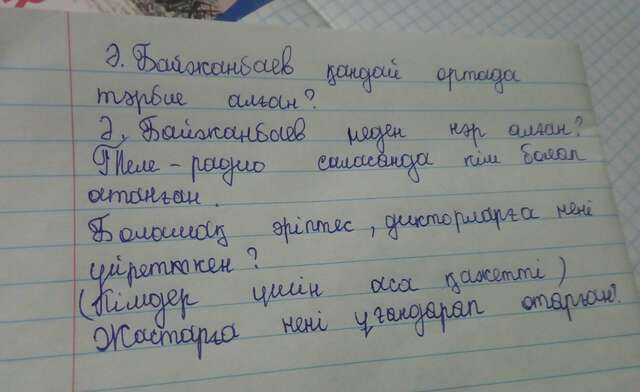 Ә. Байжанбаев қандай ортада
тәрбие алған?
Ә. Байжанбаев неден нәр алған?
Теле-радио саласында кім болап
атанған.
Болашақ әріптес, дикторларға нені
үйретккен?
(Кімдер үшін аса қажетті)
Жастарға нені ұғандарап отарған?